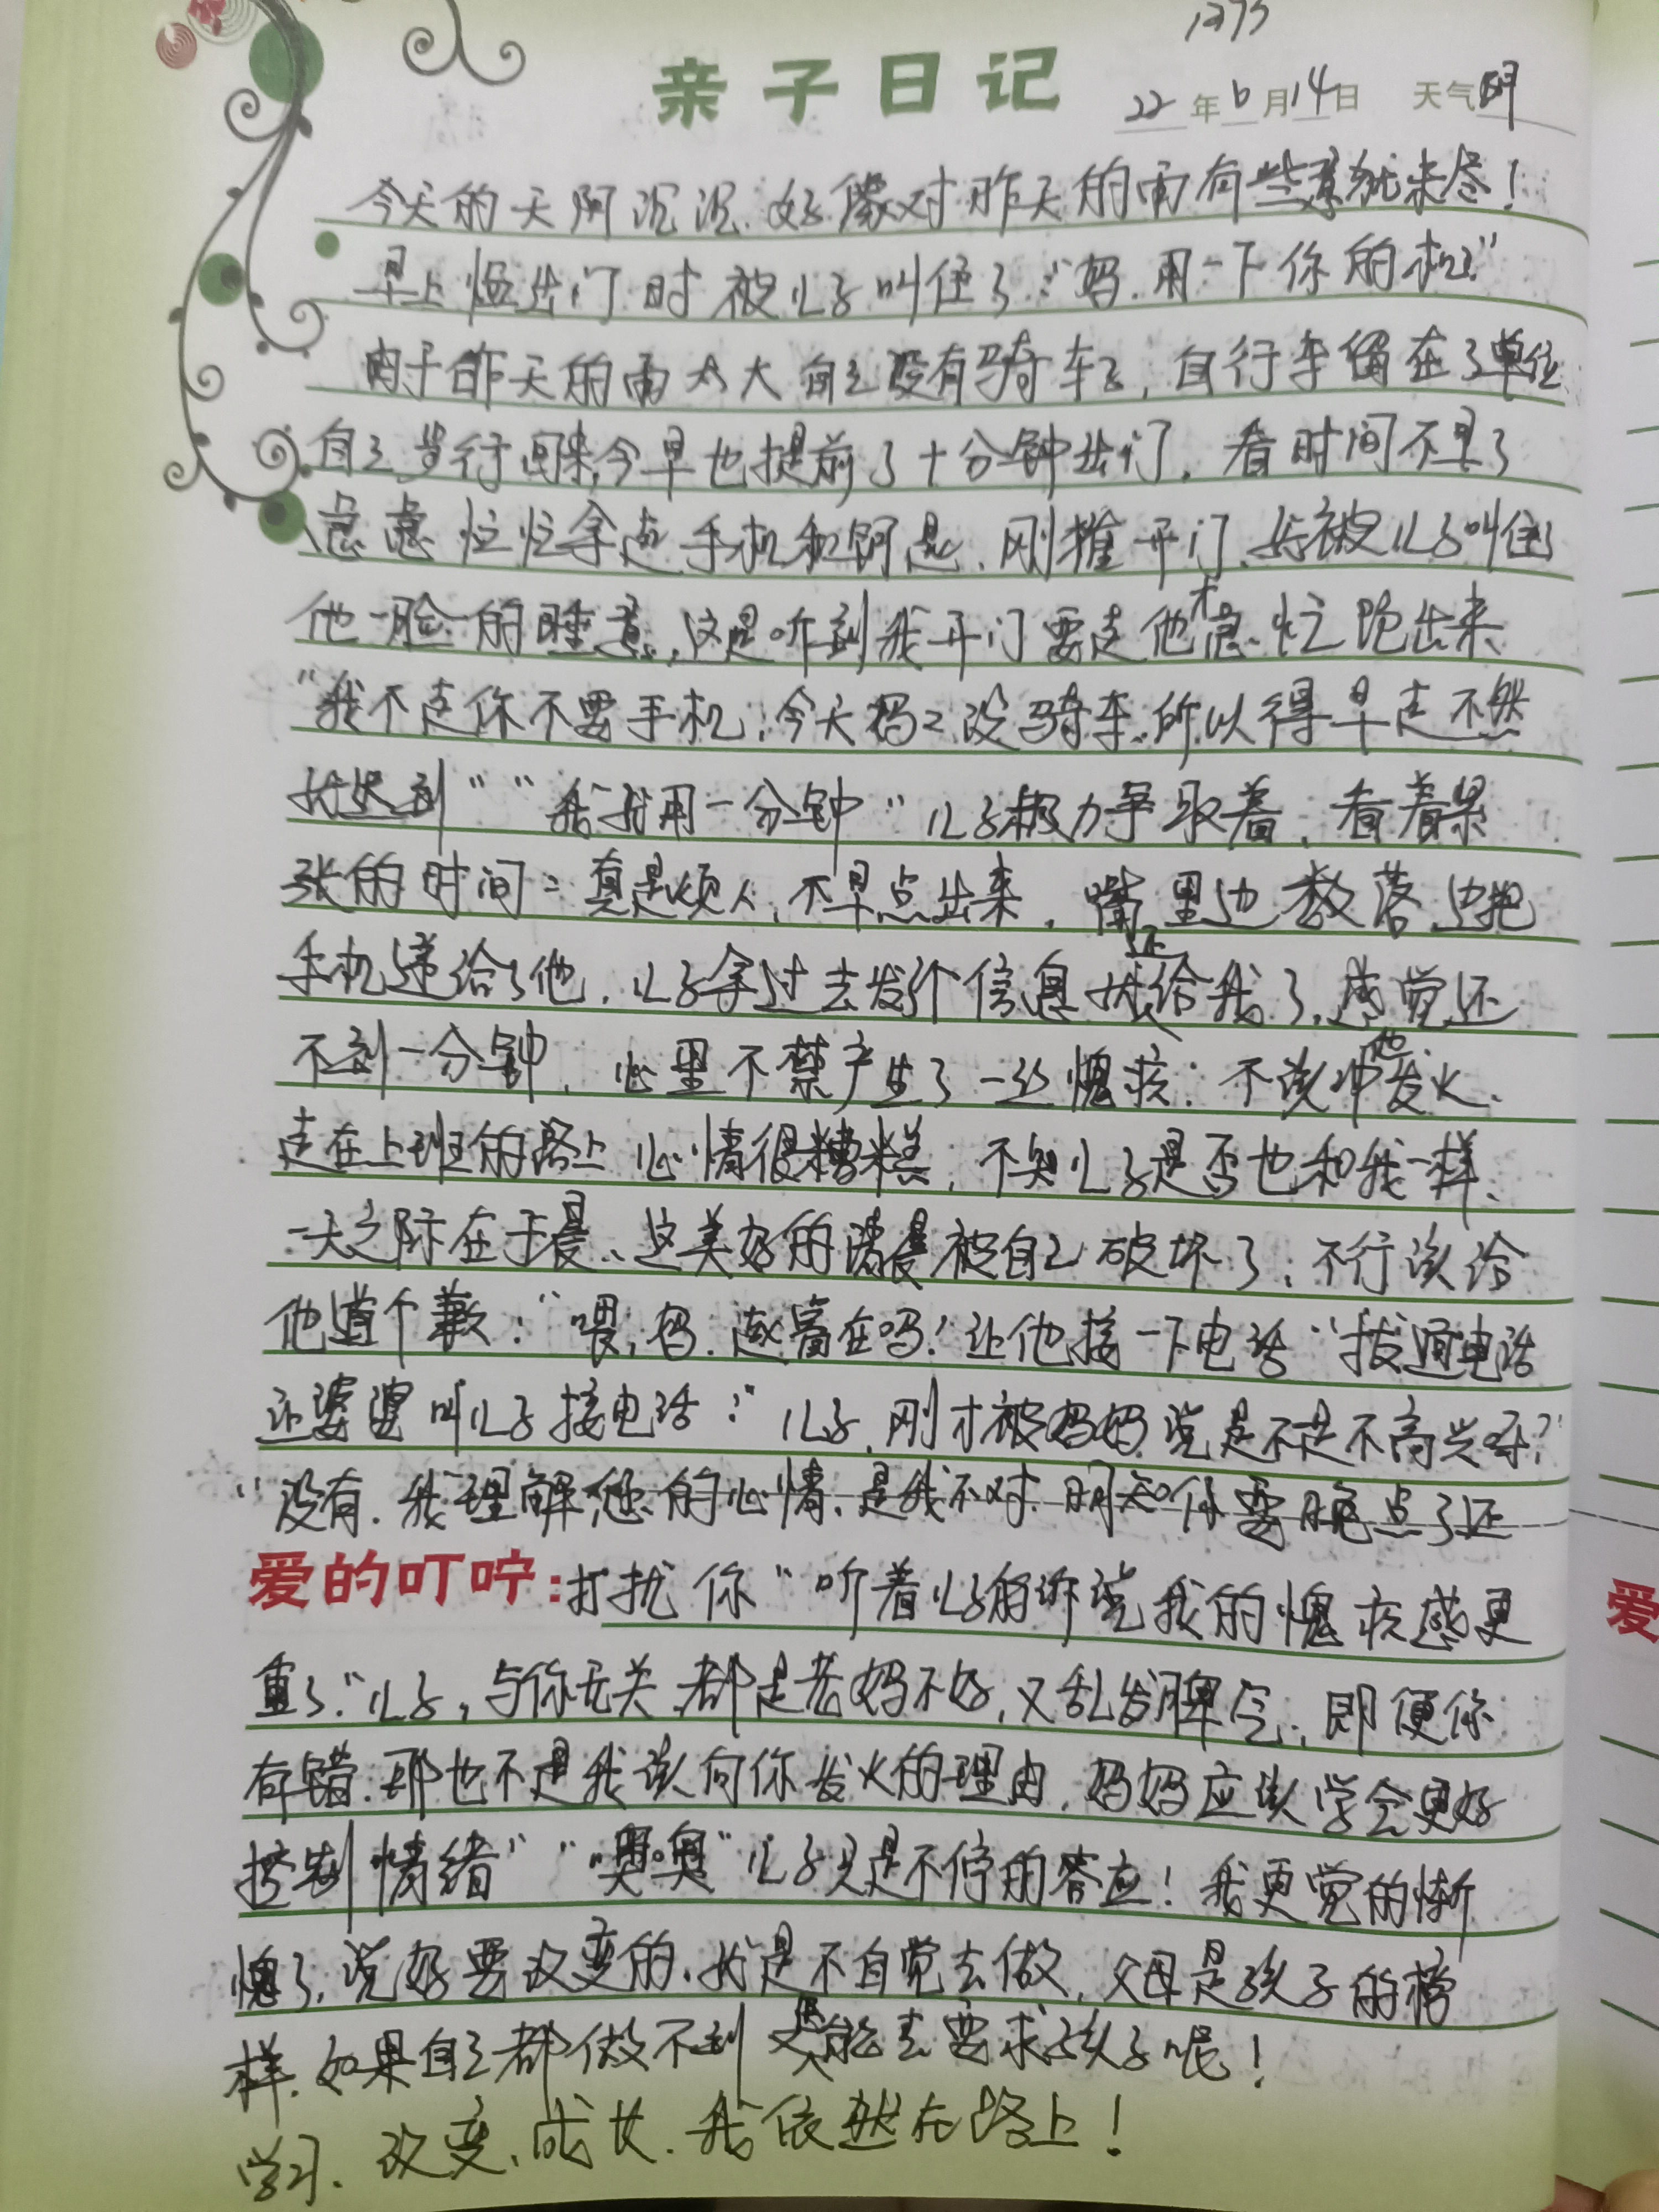 1273
亲子日记
22年6月14日 天气阴
今天的天阴沉沉.好像对昨天的雨有些意犹未尽!
早上临出门时被儿子叫住了:"妈.用一下你的机"
由于昨天的雨太大自己没有骑车了,自行车留在了单位
自己步行回来,今早也提前了十分钟出门.看时间不早了
急急忙忙拿点手机和钥匙.刚推开门.就被儿子叫住
他一脸的睡意,这是听到我开门要走他才急忙跑出来
"我不走你不要手机;今天妈妈没骑车.所以得早走不然
找迟到""我就用一分钟"儿子极力争取着.看着紧
张的时间:真是烦人,不早点出来.嘴里边数落边把
手机递给了他.儿子拿过去发个信息就还给我了.感觉还
不到一分钟.心里不禁产生了一丝愧疚:不该冲他发火.
走在上班的路上心情很糟糕;不知儿子是否也和我一样.
一天之际在于晨、这美好的清晨被自己破坏了;不行该给
他道个歉:"喂;妈.在吗!让他接一下电话"拔通电话
让婆婆叫儿子接电话:"儿子.刚才被妈妈说是不是不高兴呀?"
"没有.我理解您的心情.是我不对.明知你要晚点了还
爱的叮咛:打扰你"听着儿子的诉说我的愧疚感更
重了."儿子,与你无关.都是老妈不好,又乱发脾气.即便你
有错.那也不是我该向你发火的理由.妈妈应该学会更好
控制情绪""噢噢"儿子只是不停的答应!我更觉的惭
愧了.说好要改变的.就是不自觉去做,父母是孩子的榜
样.如果自己都做不到又怎能去要求孩子呢!
学习.改变.成长.我依然在路上!
爱